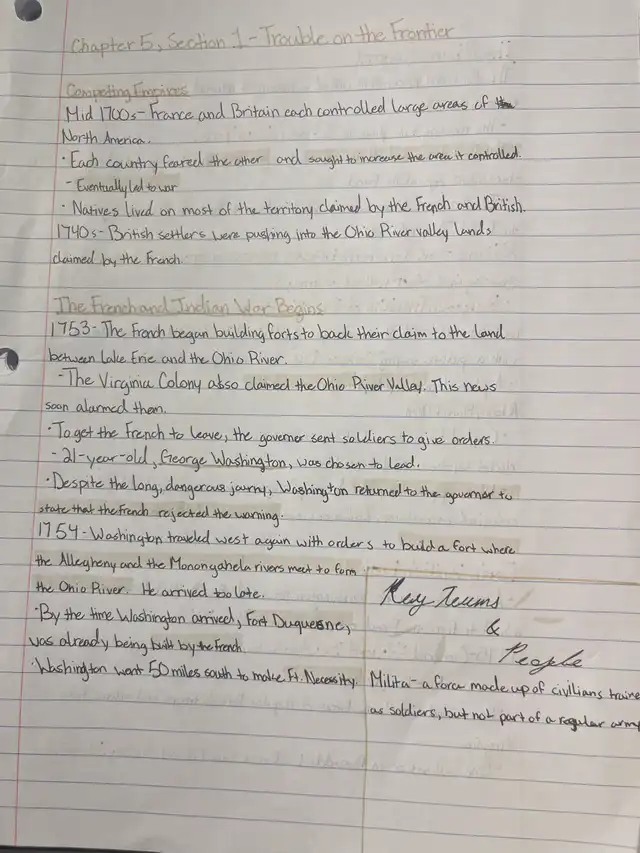 Chapter 5, Section 1 - Trouble on the Frontier
Competing Empires
Mid 1700s - France and Britain each controlled large areas of the
North America.
· Each country feared the other and sought to increase the area it controlled.
- Eventually led to war
· Natives lived on most of the territory claimed by the French and British.
1740s - British settlers were pushing into the Ohio River valley lands
claimed by the French.
The French and Indian War Begins
1753 - The French began building forts to back their claim to the land
between Lake Erie and the Ohio River.
- The Virginia Colony also claimed the Ohio River Valley. This news
soon alarmed them.
· To get the French to leave, the governer sent soldiers to give orders.
- 21-year-old, George Washington, was chosen to lead.
· Despite the long, dangerous journy, Washington returned to the governor to
state that the French rejected the warning.
1754 - Washington traveled west again with orders to build a fort where
the Allegheny and the Monongahela rivers meet to form
the Ohio River. He arrived too late.
· By the time Washington arrived, Fort Duquesne,
was already being built by the French.
· Washington went 50 miles south to make Ft. Necessity.
Key Terms
&
People
Milita - a force made up of civillians traine
as soldiers, but not part of a regular army